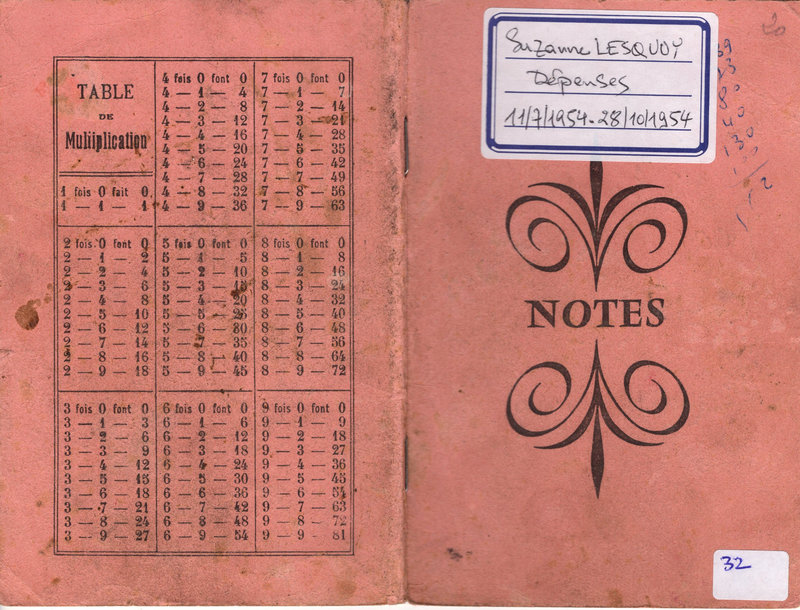 TABLE
DE
Multiplication
1 fois 0 fait 0
1 — 1 — 1
4 fois 0 font 0
4 — 1 — 4
4 — 2 — 8
4 — 3 — 12
4 — 4 — 16
4 — 5 — 20
4 — 6 — 24
4 — 7 — 28
4 — 8 — 32
4 — 9 — 36
7 fois 0 font 0
7 — 1 — 7
7 — 2 — 14
7 — 3 — 21
7 — 4 — 28
7 — 5 — 35
7 — 6 — 42
7 — 7 — 49
7 — 8 — 56
7 — 9 — 63
2 fois 0 font 0
2 — 1 — 2
2 — 2 — 4
2 — 3 — 6
2 — 4 — 8
2 — 5 — 10
2 — 6 — 12
2 — 7 — 14
2 — 8 — 16
2 — 9 — 18
5 fois 0 font 0
5 — 1 — 5
5 — 2 — 10
5 — 3 — 15
5 — 4 — 20
5 — 5 — 25
5 — 6 — 30
5 — 7 — 35
5 — 8 — 40
5 — 9 — 45
8 fois 0 font 0
8 — 1 — 8
8 — 2 — 16
8 — 3 — 24
8 — 4 — 32
8 — 5 — 40
8 — 6 — 48
8 — 7 — 56
8 — 8 — 64
8 — 9 — 72
3 fois 0 font 0
3 — 1 — 3
3 — 2 — 6
3 — 3 — 9
3 — 4 — 12
3 — 5 — 15
3 — 6 — 18
3 — 7 — 21
3 — 8 — 24
3 — 9 — 27
6 fois 0 font 0
6 — 1 — 6
6 — 2 — 12
6 — 3 — 18
6 — 4 — 24
6 — 5 — 30
6 — 6 — 36
6 — 7 — 42
6 — 8 — 48
6 — 9 — 54
9 fois 0 font 0
9 — 1 — 9
9 — 2 — 18
9 — 3 — 27
9 — 4 — 36
9 — 5 — 45
9 — 6 — 54
9 — 7 — 63
9 — 8 — 72
9 — 9 — 81
Suzanne LESQUOY
Dépenses
11/7/1954-28/10/1954
80
40
130
NOTES
32